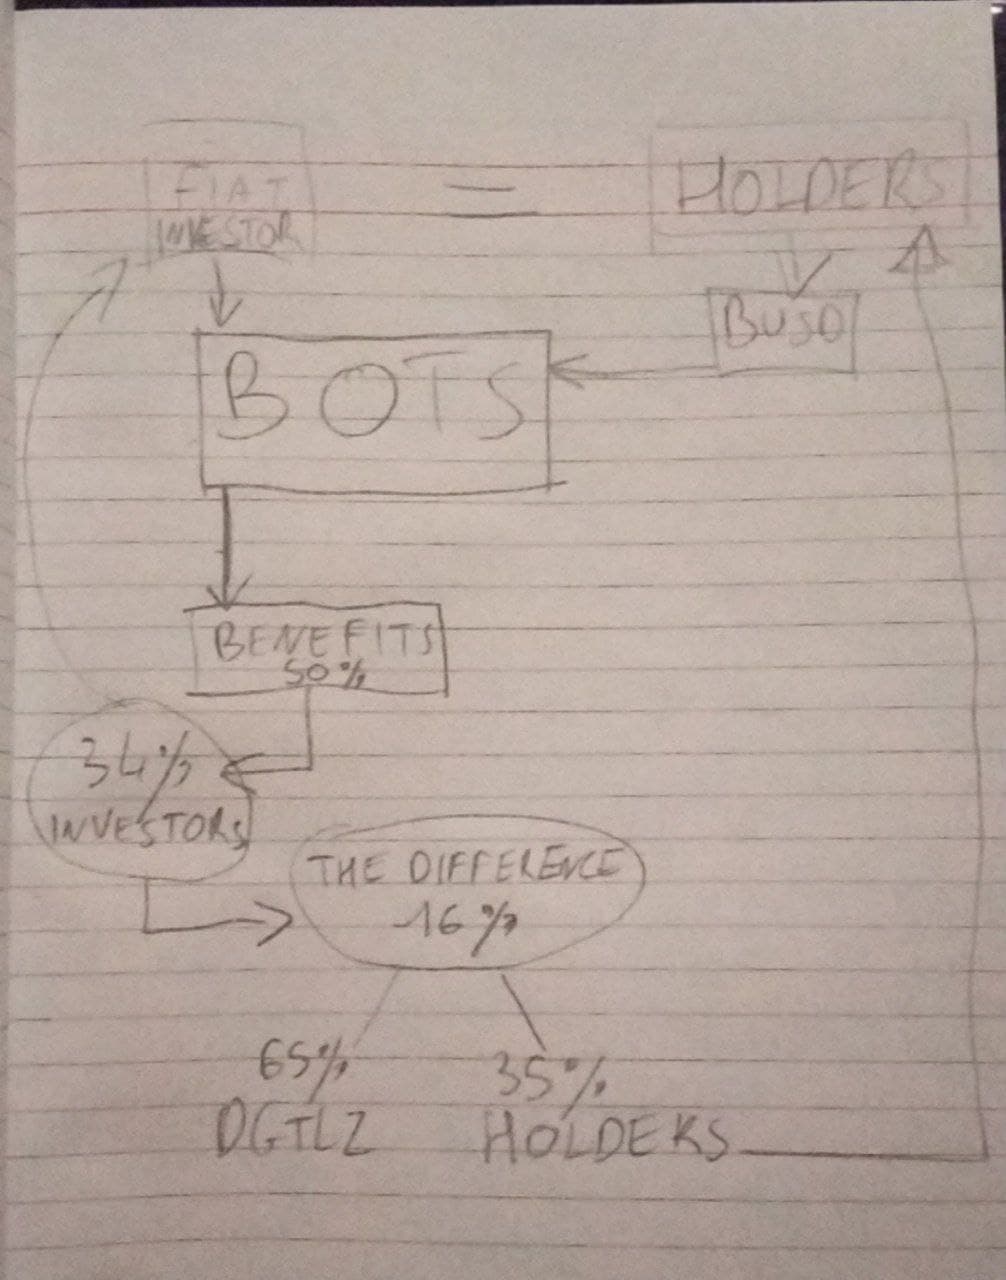 FIAT
INVESTOR
=
HOLDERS
BUSD
BOTS
BENEFITS
50%
34%
INVESTORS
THE DIFFERENCE
16%
65%
DGTLZ
35%
HOLDERS